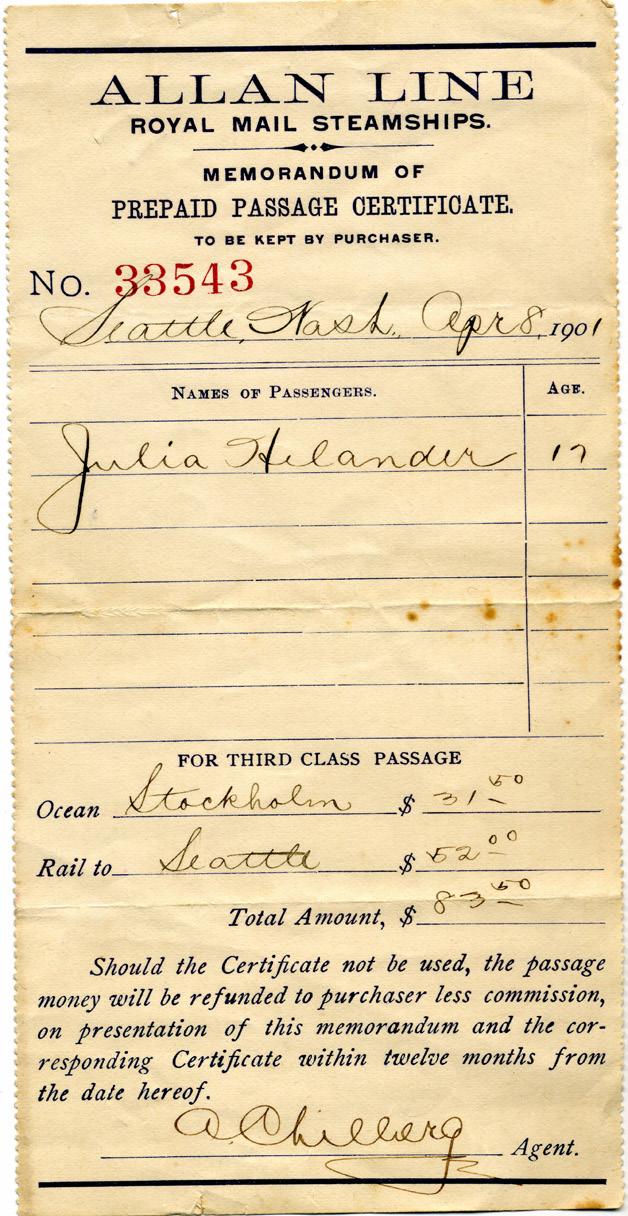 ALLAN LINE
ROYAL MAIL STEAMSHIPS.
MEMORANDUM OF
PREPAID PASSAGE CERTIFICATE.
TO BE KEPT BY PURCHASER.
No. 33543
Seattle, Wash., Apr 8, 1901
NAMES OF PASSENGERS. AGE.
Julia Helander 17
FOR THIRD CLASS PASSAGE
Ocean Stockholm $ 31.50
Rail to Seattle $ 52.00
Total Amount, $ 83.50
Should the Certificate not be used, the passage
money will be refunded to purchaser less commission,
on presentation of this memorandum and the cor-
responding Certificate within twelve months from
the date hereof.
A. Chilberg Agent.